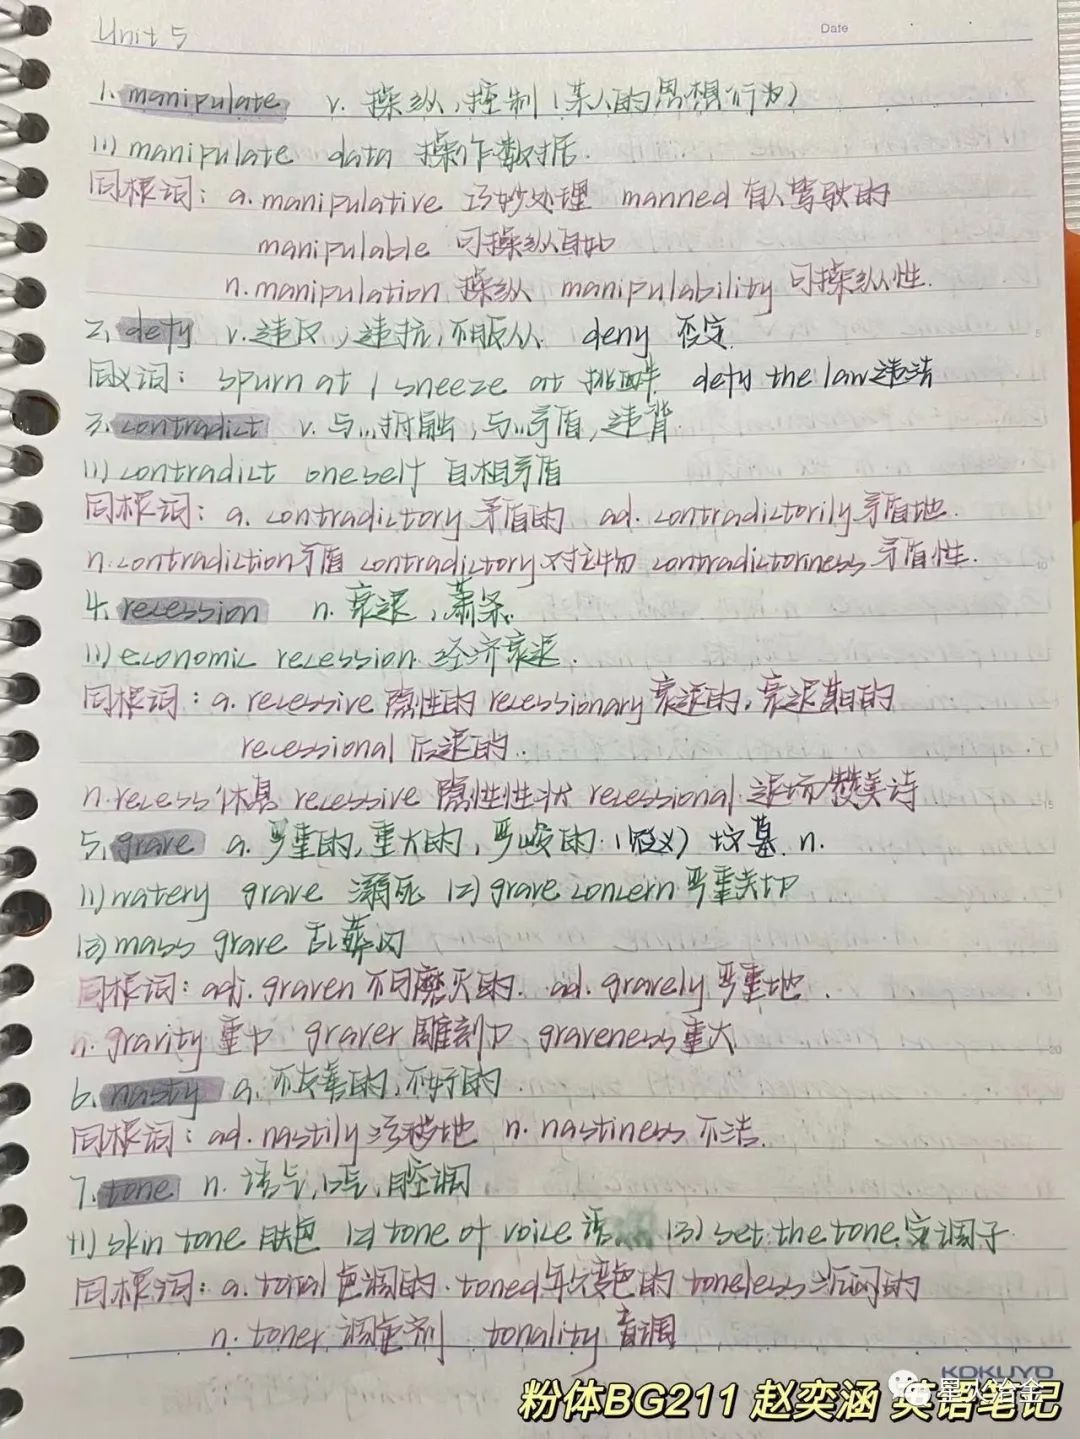 Unit 5
Date
1. manipulate v. 操纵,控制(某人的思想/行为)
(1) manipulate data 操作数据.
同根词: a. manipulative 巧妙处理 manned 有人驾驶的
manipulable 可操纵自如
n. manipulation 操纵 manipulability 可操纵性.
2. defy v. 违反,违抗,不服从. deny 否定
同义词: spurn at / sneeze at 挑衅 defy the law 违法
3. contradict v. 与...抵触,与...矛盾,违背.
(1) contradict oneself 自相矛盾
同根词: a. contradictory 矛盾的 ad. contradictorily 矛盾地.
n. contradiction 矛盾 contradictory 对立物 contradictoriness 矛盾性.
4. recession n. 衰退,萧条.
(1) economic recession. 经济衰退.
同根词: a. recessive 隐性的 recessionary 衰退的,衰退期的
recessional 后退的.
n. recess 休息 recessive 隐性性状 recessional 退场赞美诗
5. grave a. 严重的,重大的,严峻的. 坟墓. n.
(1) watery grave 溺死 (2) grave concern 严重关切
(3) mass grave 乱葬冈
同根词: adj. graven 不可磨灭的. ad. gravely 严重地.
n. gravity 重力 graver 雕刻刀 graveness 重大
6. nasty a. 不友善的,不好的.
同根词: ad. nastily 污秽地 n. nastiness 不洁.
7. tone n. 语气,口气,腔调
(1) skin tone 肤色 (2) tone of voice 语 (3) set the tone 定调子
同根词: a. tonal 色调的. toned 年久变色的 toneless 沉闷的
n. toner 调色剂 tonality 音调
KOKUYO
星火冶金
粉体BG211 赵奕涵 英语笔记